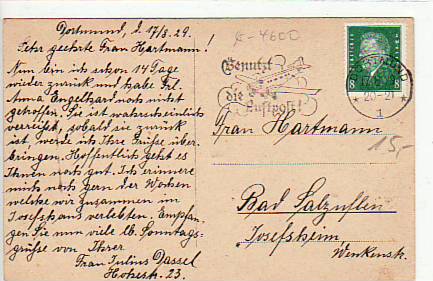 Dortmund, d. 17/8. 29.
Sehr geehrte Frau Hartmann!
Nun bin ich schon 14 Tage
wieder zurück und habe Frl.
Anna Engelhard noch nicht
getroffen. Sie ist wahrscheinlich
verreist, sobald sie zurück
ist, werde ich Ihre Grüße über-
bringen. Hoffentlich geht es
Ihnen noch gut. Ich erinnere
mich noch gern der Wochen
welche wir zusammen im
Josefshaus verlebten. Empfan-
gen Sie nun viele lb. Sonntags-
grüße von Ihrer
Frau Julius Dassel
Hohestr. 23.
C-4600
Benutzt
die Luftpost!
DORTMUND
20-21
1
8 8
Frau Hartmann
15,-
Bad Salzuflen
Josefsheim
Wenkenstr.